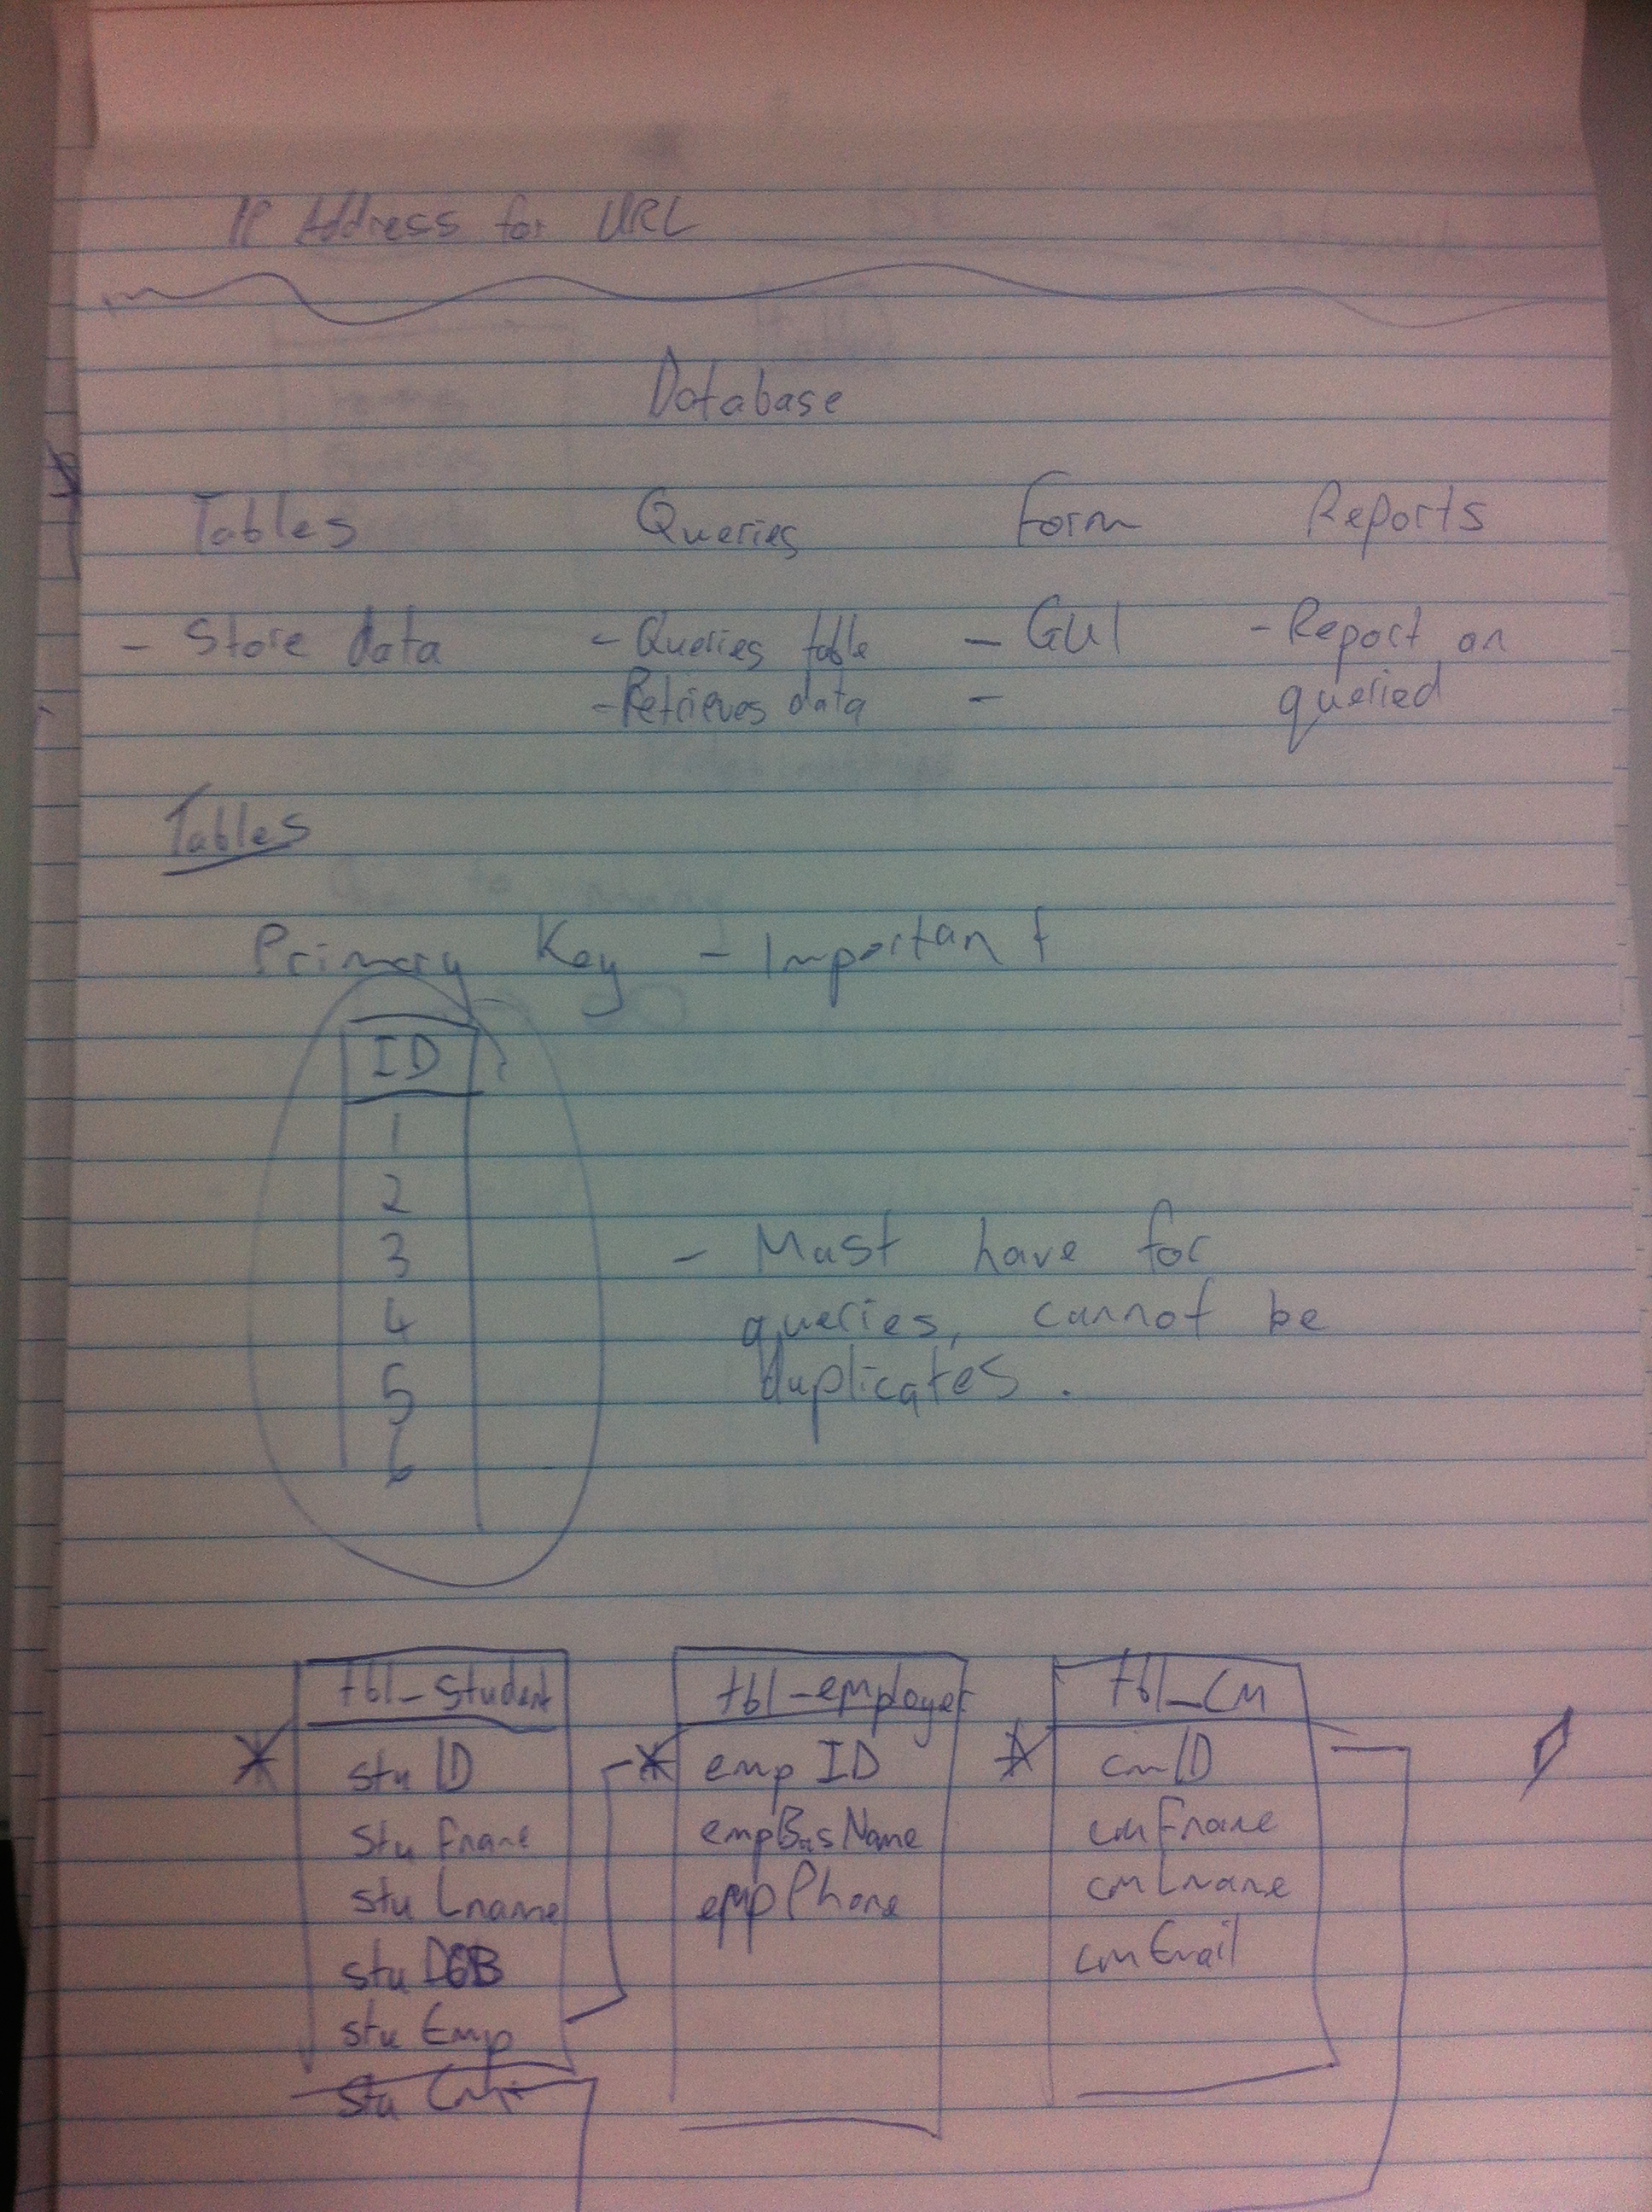 IP Address for URL
Database
Tables Queries Form Reports
- Store data - Queries table - GUI - Report on
- Retrieves data - queried
Tables
Primary Key - Important
ID
1
2
3
4
5
6
- Must have for
queries, cannot be
duplicates.
tbl_student tbl_employer tbl_CM
* stu ID * emp ID * cmID
stu Fname empBusName cmFname
stu Lname empPhone cmLname
stu DOB cmEmail
stu Emp
stu CM